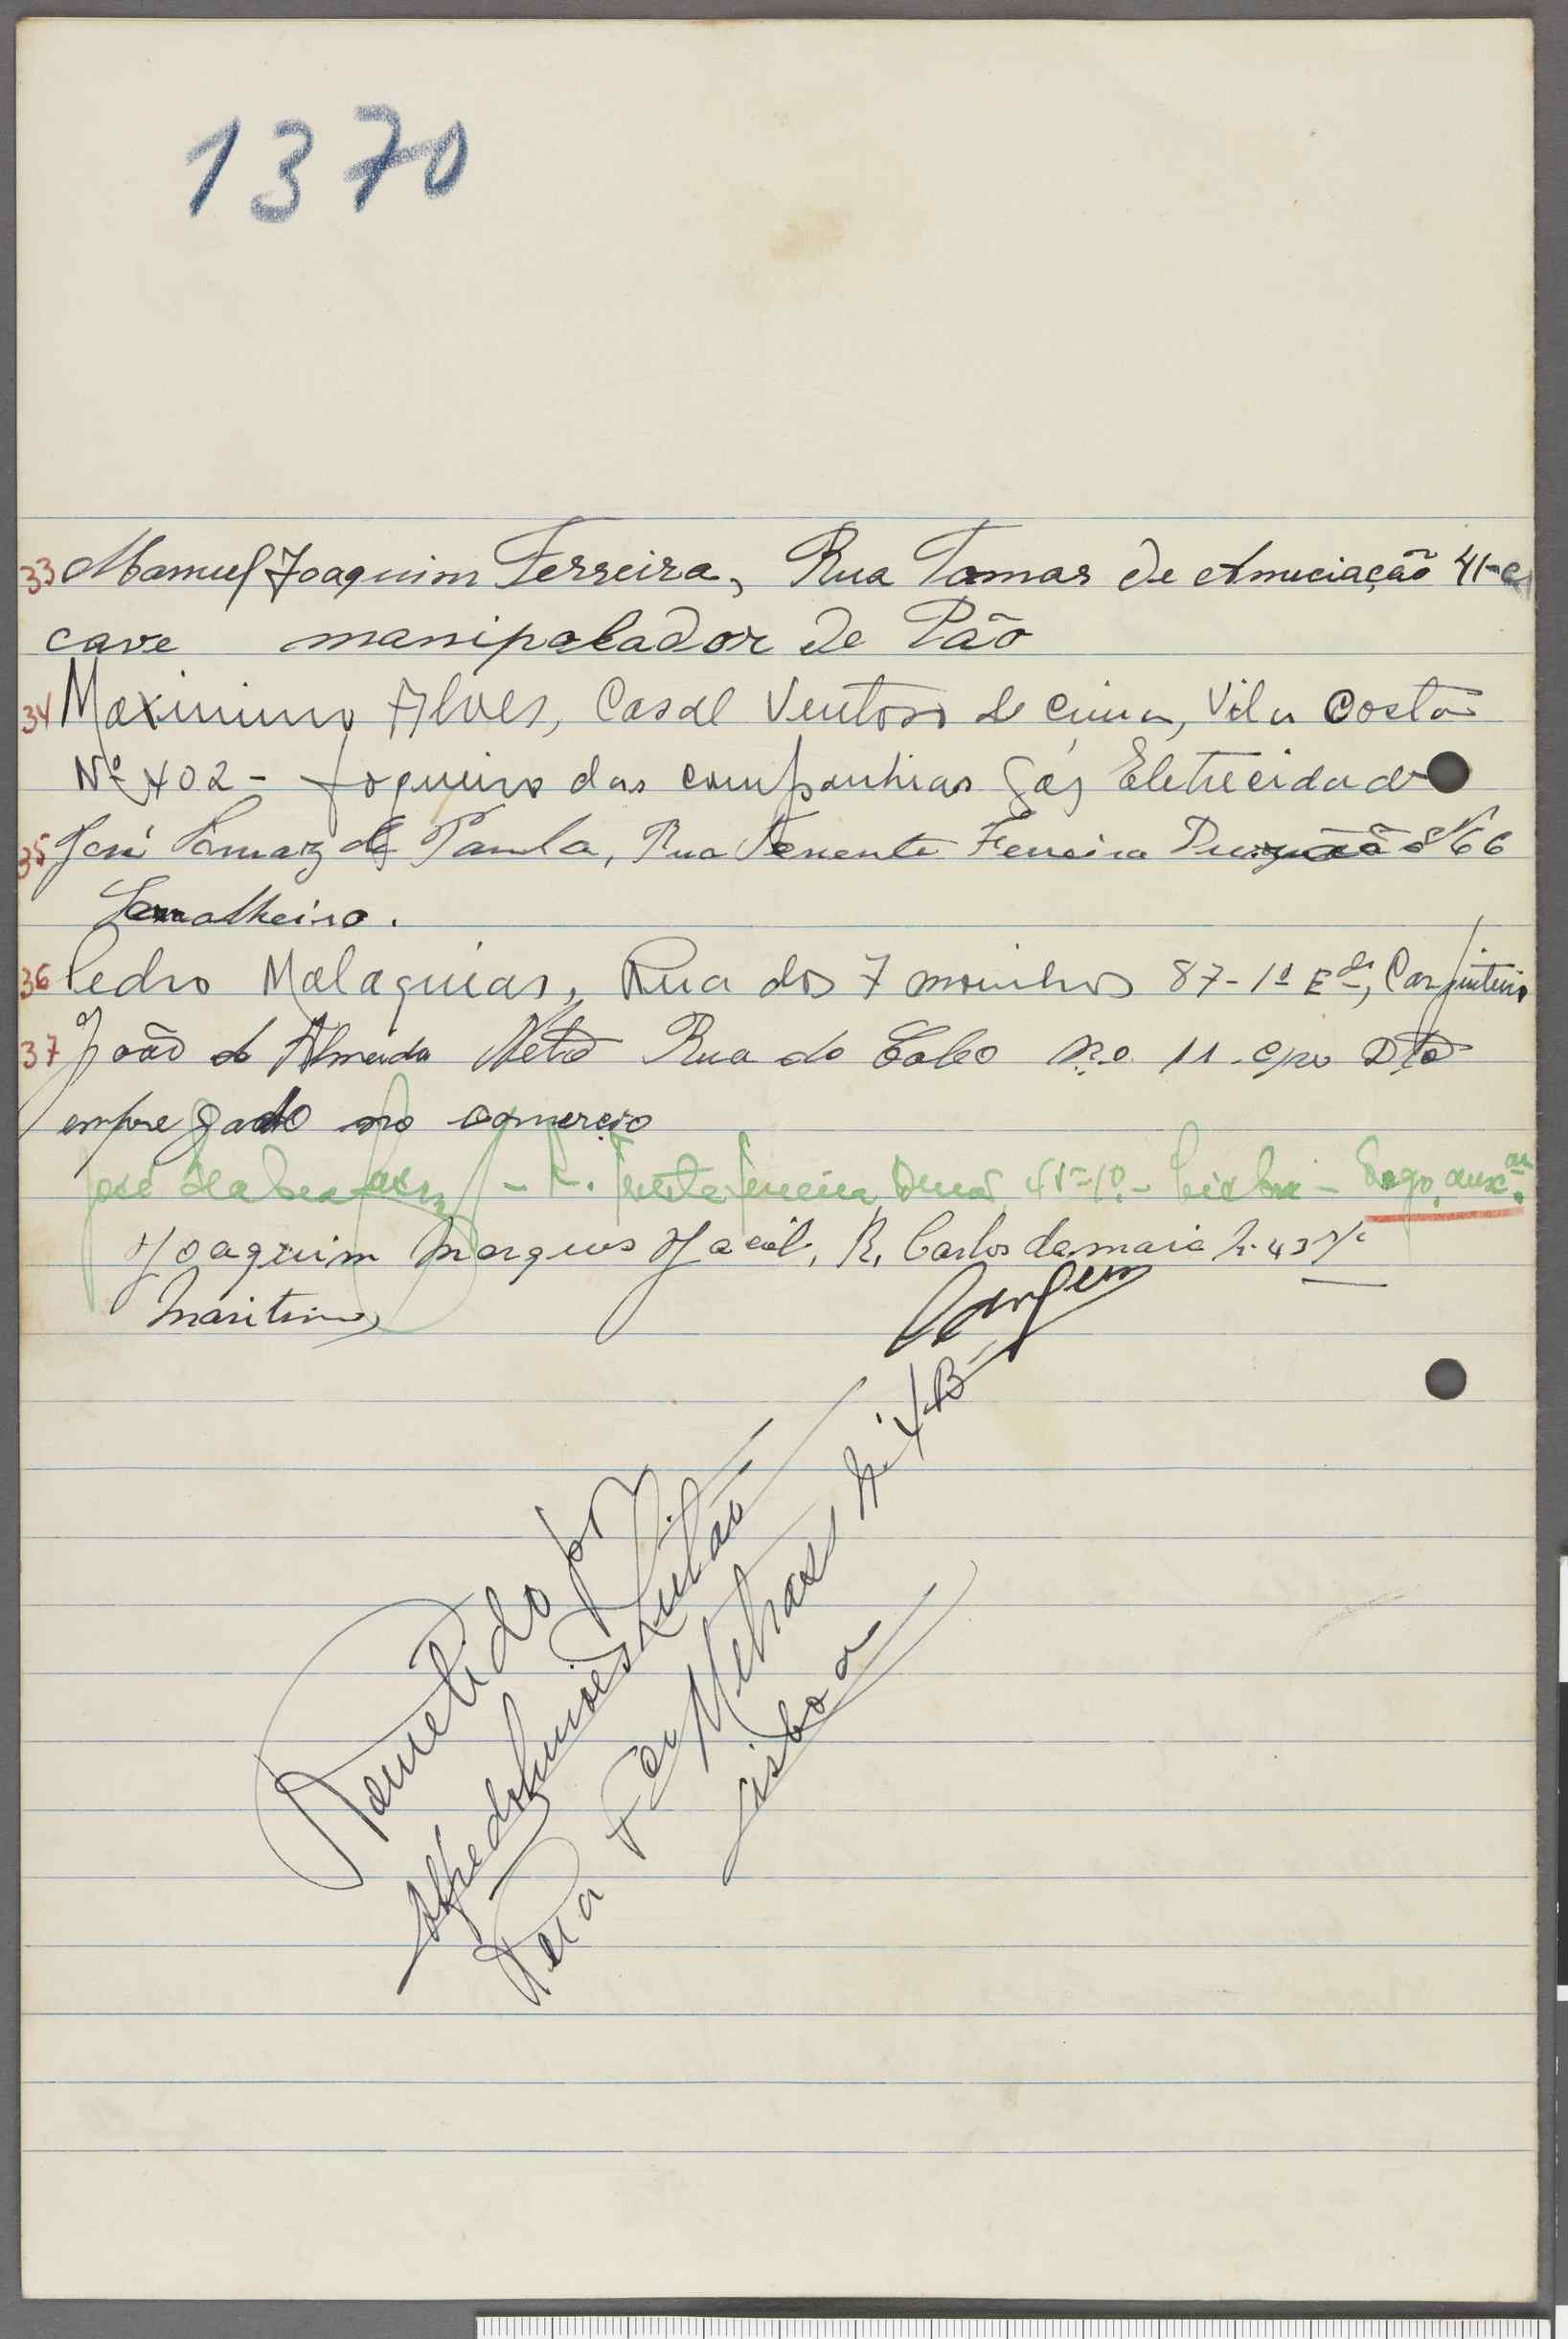 1370
33 Manuel Joaquim Ferreira, Rua Tomas de Anuciação 41-c
cave manipolador de Pão
34 Maximino Alves, Casal Ventoso de cima, Vila Costa
Nº 402 - fogueiro das companhias Gáz Eletrecidade
35 José Tomaz de Paula, Rua Tenente Ferreira 66
Serralheiro.
36 Pedro Malaquias, Rua dos 7 moinhos 87-1º Edo, Carpinteiro
37 João de Almeida Neto Rua do Cabo n.o 11 Dto
empregado no comercio
José - R. Tente Ferreira 41-1º - Lisboa -
Joaquim Marques Jacob, R. Carlos da maia 43
Maritimo
Remetido por
Alfredo
Rua
Lisboa